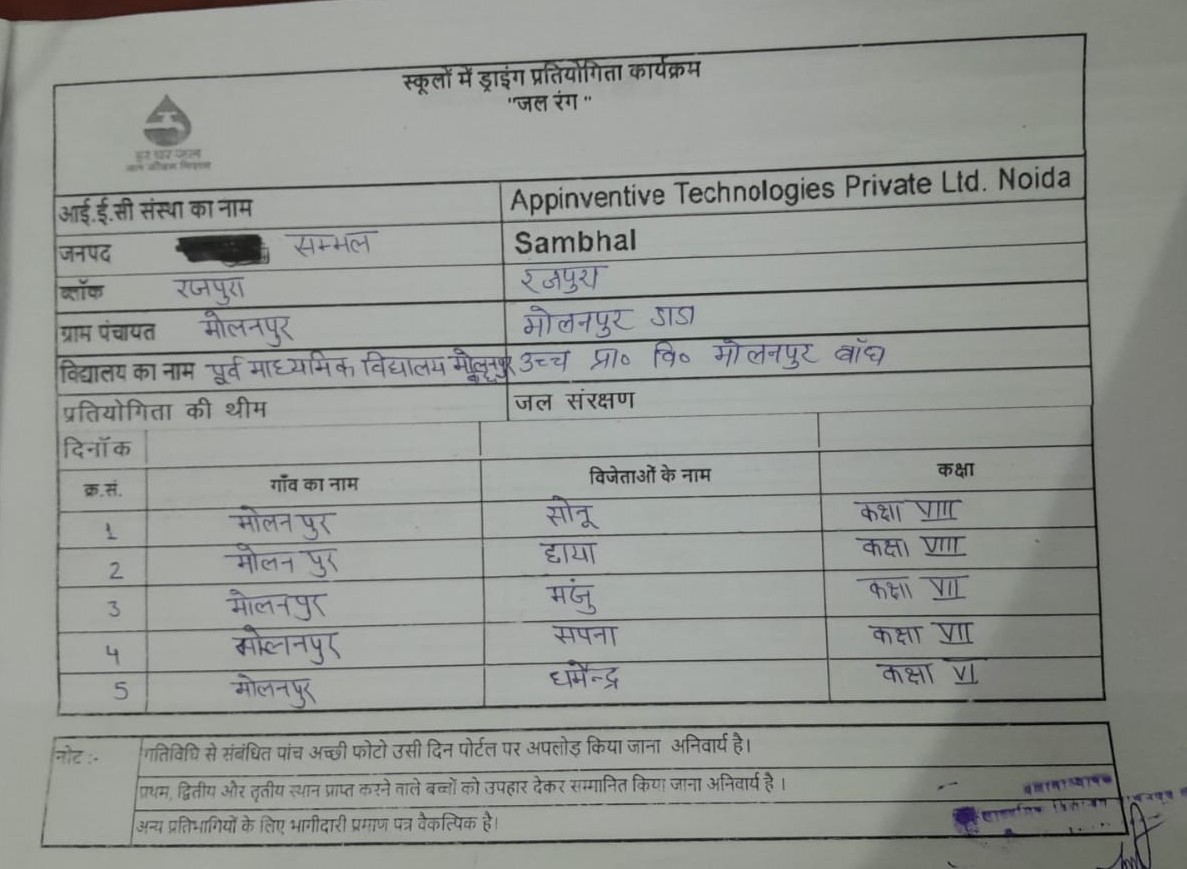 स्कूलों में ड्राइंग प्रतियोगिता कार्यक्रम
"जल रंग "
हर घर जल
जल जीवन मिशन
आई.ई.सी संस्था का नाम Appinventive Technologies Private Ltd. Noida
जनपद सम्भल Sambhal
ब्लॉक रजपुरा रजपुरा
ग्राम पंचायत मोलनपुर मोलनपुर डांडा
विद्यालय का नाम पूर्व माध्यमिक विद्यालय मोलनपुर उच्च प्रा० वि० मोलनपुर बाँध
प्रतियोगिता की थीम जल संरक्षण
दिनॉक
क्र.सं. गाँव का नाम विजेताओं के नाम कक्षा
1 मोलनपुर सोनू कक्षा VIII
2 मोलनपुर छाया कक्षा VIII
3 मोलनपुर मंजु कक्षा VII
4 मोलनपुर सपना कक्षा VII
5 मोलनपुर धर्मेन्द्र कक्षा VI
नोट :- गतिविधि से संबंधित पांच अच्छी फोटो उसी दिन पोर्टल पर अपलोड किया जाना अनिवार्य है।
प्रथम, द्वितीय और तृतीय स्थान प्राप्त करने वाले बच्चों को उपहार देकर सम्मानित किया जाना अनिवार्य है ।
अन्य प्रतिभागियों के लिए भागीदारी प्रमाण पत्र वैकल्पिक है।